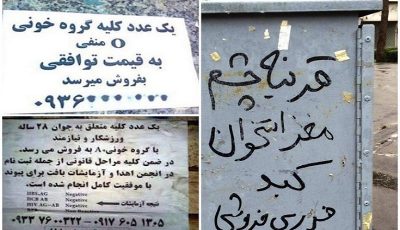 یک عدد کلیه گروه خونی
O منفی
به قیمت توافقی
بفروش میرسد
۰۹۳۶
یک عدد کلیه متعلق به جوان ۲۸ ساله
ورزشکار و نیازمند
با گروه خونی ۸۰ به فروش می رسد.
در ضمن کلیه مراحل قانونی از جمله ثبت نام
در انجمن اهدا و آزمایشات بافت برای پیوند
با موفقیت کامل انجام شده است.
نتیجه آزمایشات
HBS.AG Negative
HCB AB Negative
HIV.AG-AB Negative
۰۹۳۳ ۷۶۰۰۳۲۲ - ۰۹۱۷ ۶۰۵ ۱۳۰۵
قرنیه چشم
مغز استخوان
کبد
فوری فروشی